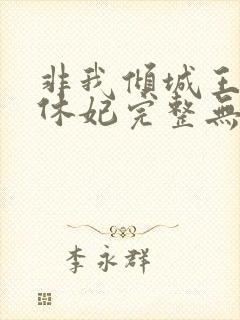 非我傾城王
休妃完整無
李永群